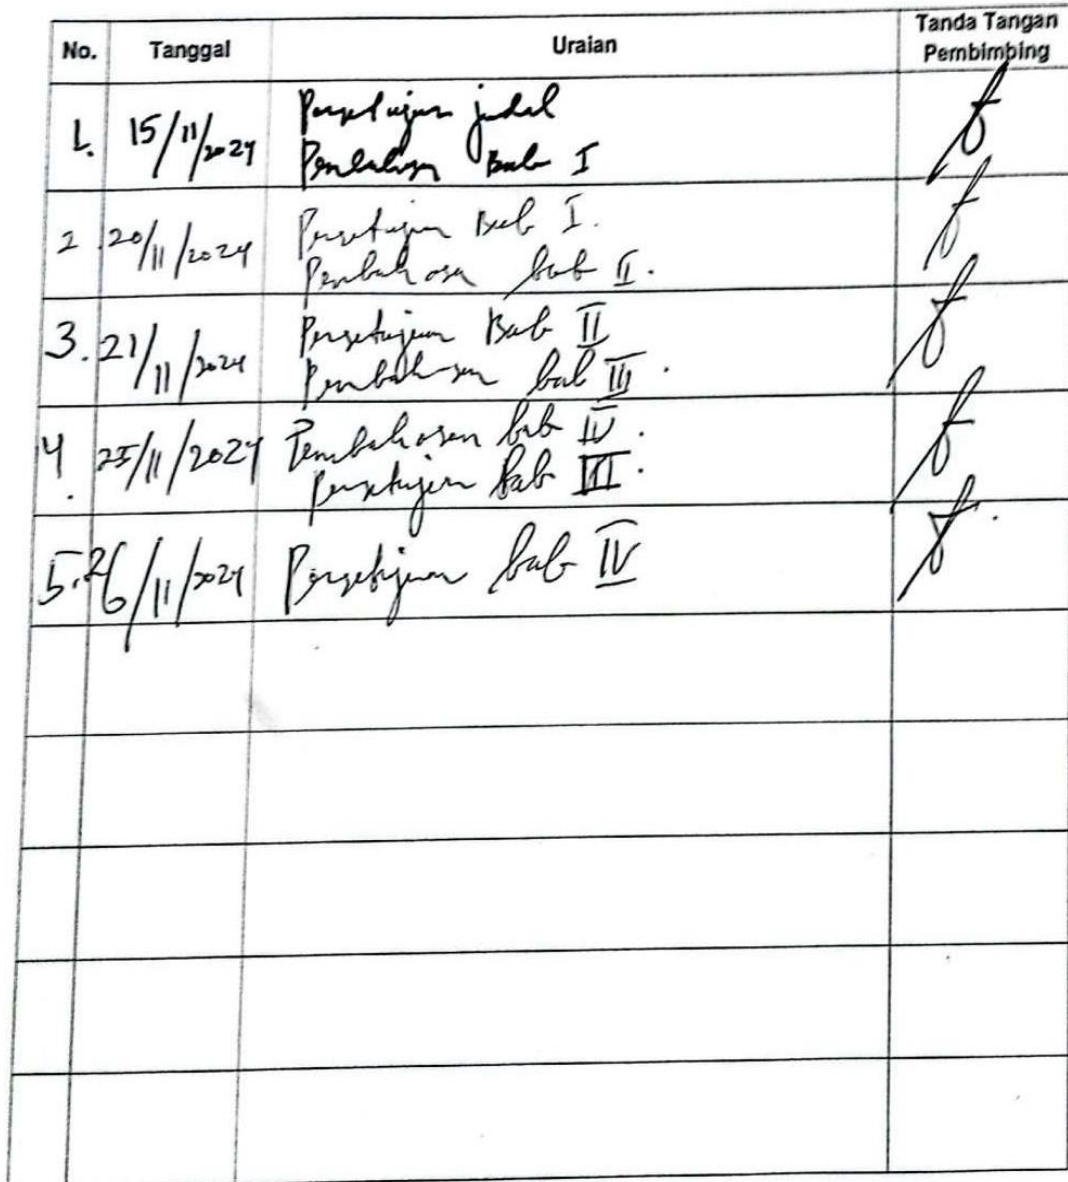 No. Tanggal Uraian Tanda Tangan
Pembimbing
1. 15/11/2024 Persetujuan judul
Pembahasan Bab I
2 20/11/2024 Persetujuan Bab I.
Pembahasan bab II.
3. 21/11/2024 Persetujuan Bab II
Pembahasan bab III.
4. 25/11/2024 Pembahasan bab IV.
persetujuan bab III.
5. 26/11/2024 Persetujuan bab IV